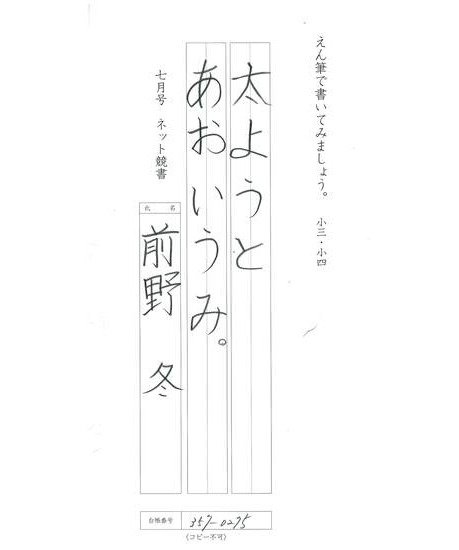 えん筆で書いてみましょう。 小三・小四
太ようと
あおいうみ。
七月号 ネット競書
氏 名
前野 冬
台帳番号 357-0275
(コピー不可)